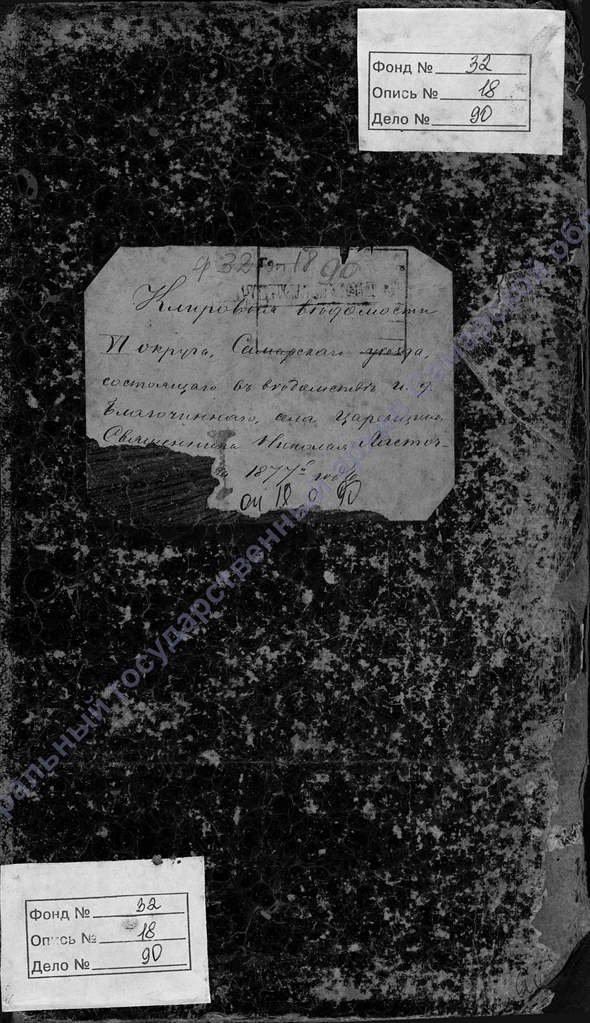 Фонд № 32
Опись № 18
Дело № 90
ф 32 оп 18 90
Клировыя вѣдомости
VI округа, Самарскаго уѣзда,
состоящаго въ вѣдомствѣ и. д.
Благочиннаго, села Царевщины
Священника Николая Ласточ-
1877 г. года
оп 18 д 90
Фонд № 32
Опись № 18
Дело № 90
государственный